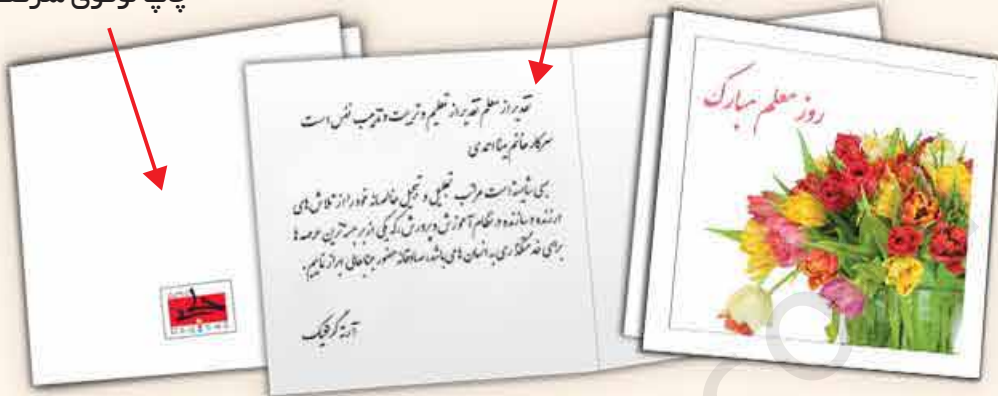 چاپ لوگوی شرکت
روز معلم مبارک
تقدیر از معلم تقدیر از تعلیم و تربیت و تهذیب نفس است
سرکار خانم مینا احدی
بسی شایسته است مراتب تجلیل و تبجیل خالصانه خود را از تلاش‌های
ارزنده و سازنده در نظام آموزش و پرورش، که یکی از برجسته‌ترین عرصه‌ها
برای خدمتگزاری به انسان‌ها می‌باشد، صادقانه حضور جنابعالی ابراز نماییم.
آرتنه گرافیک